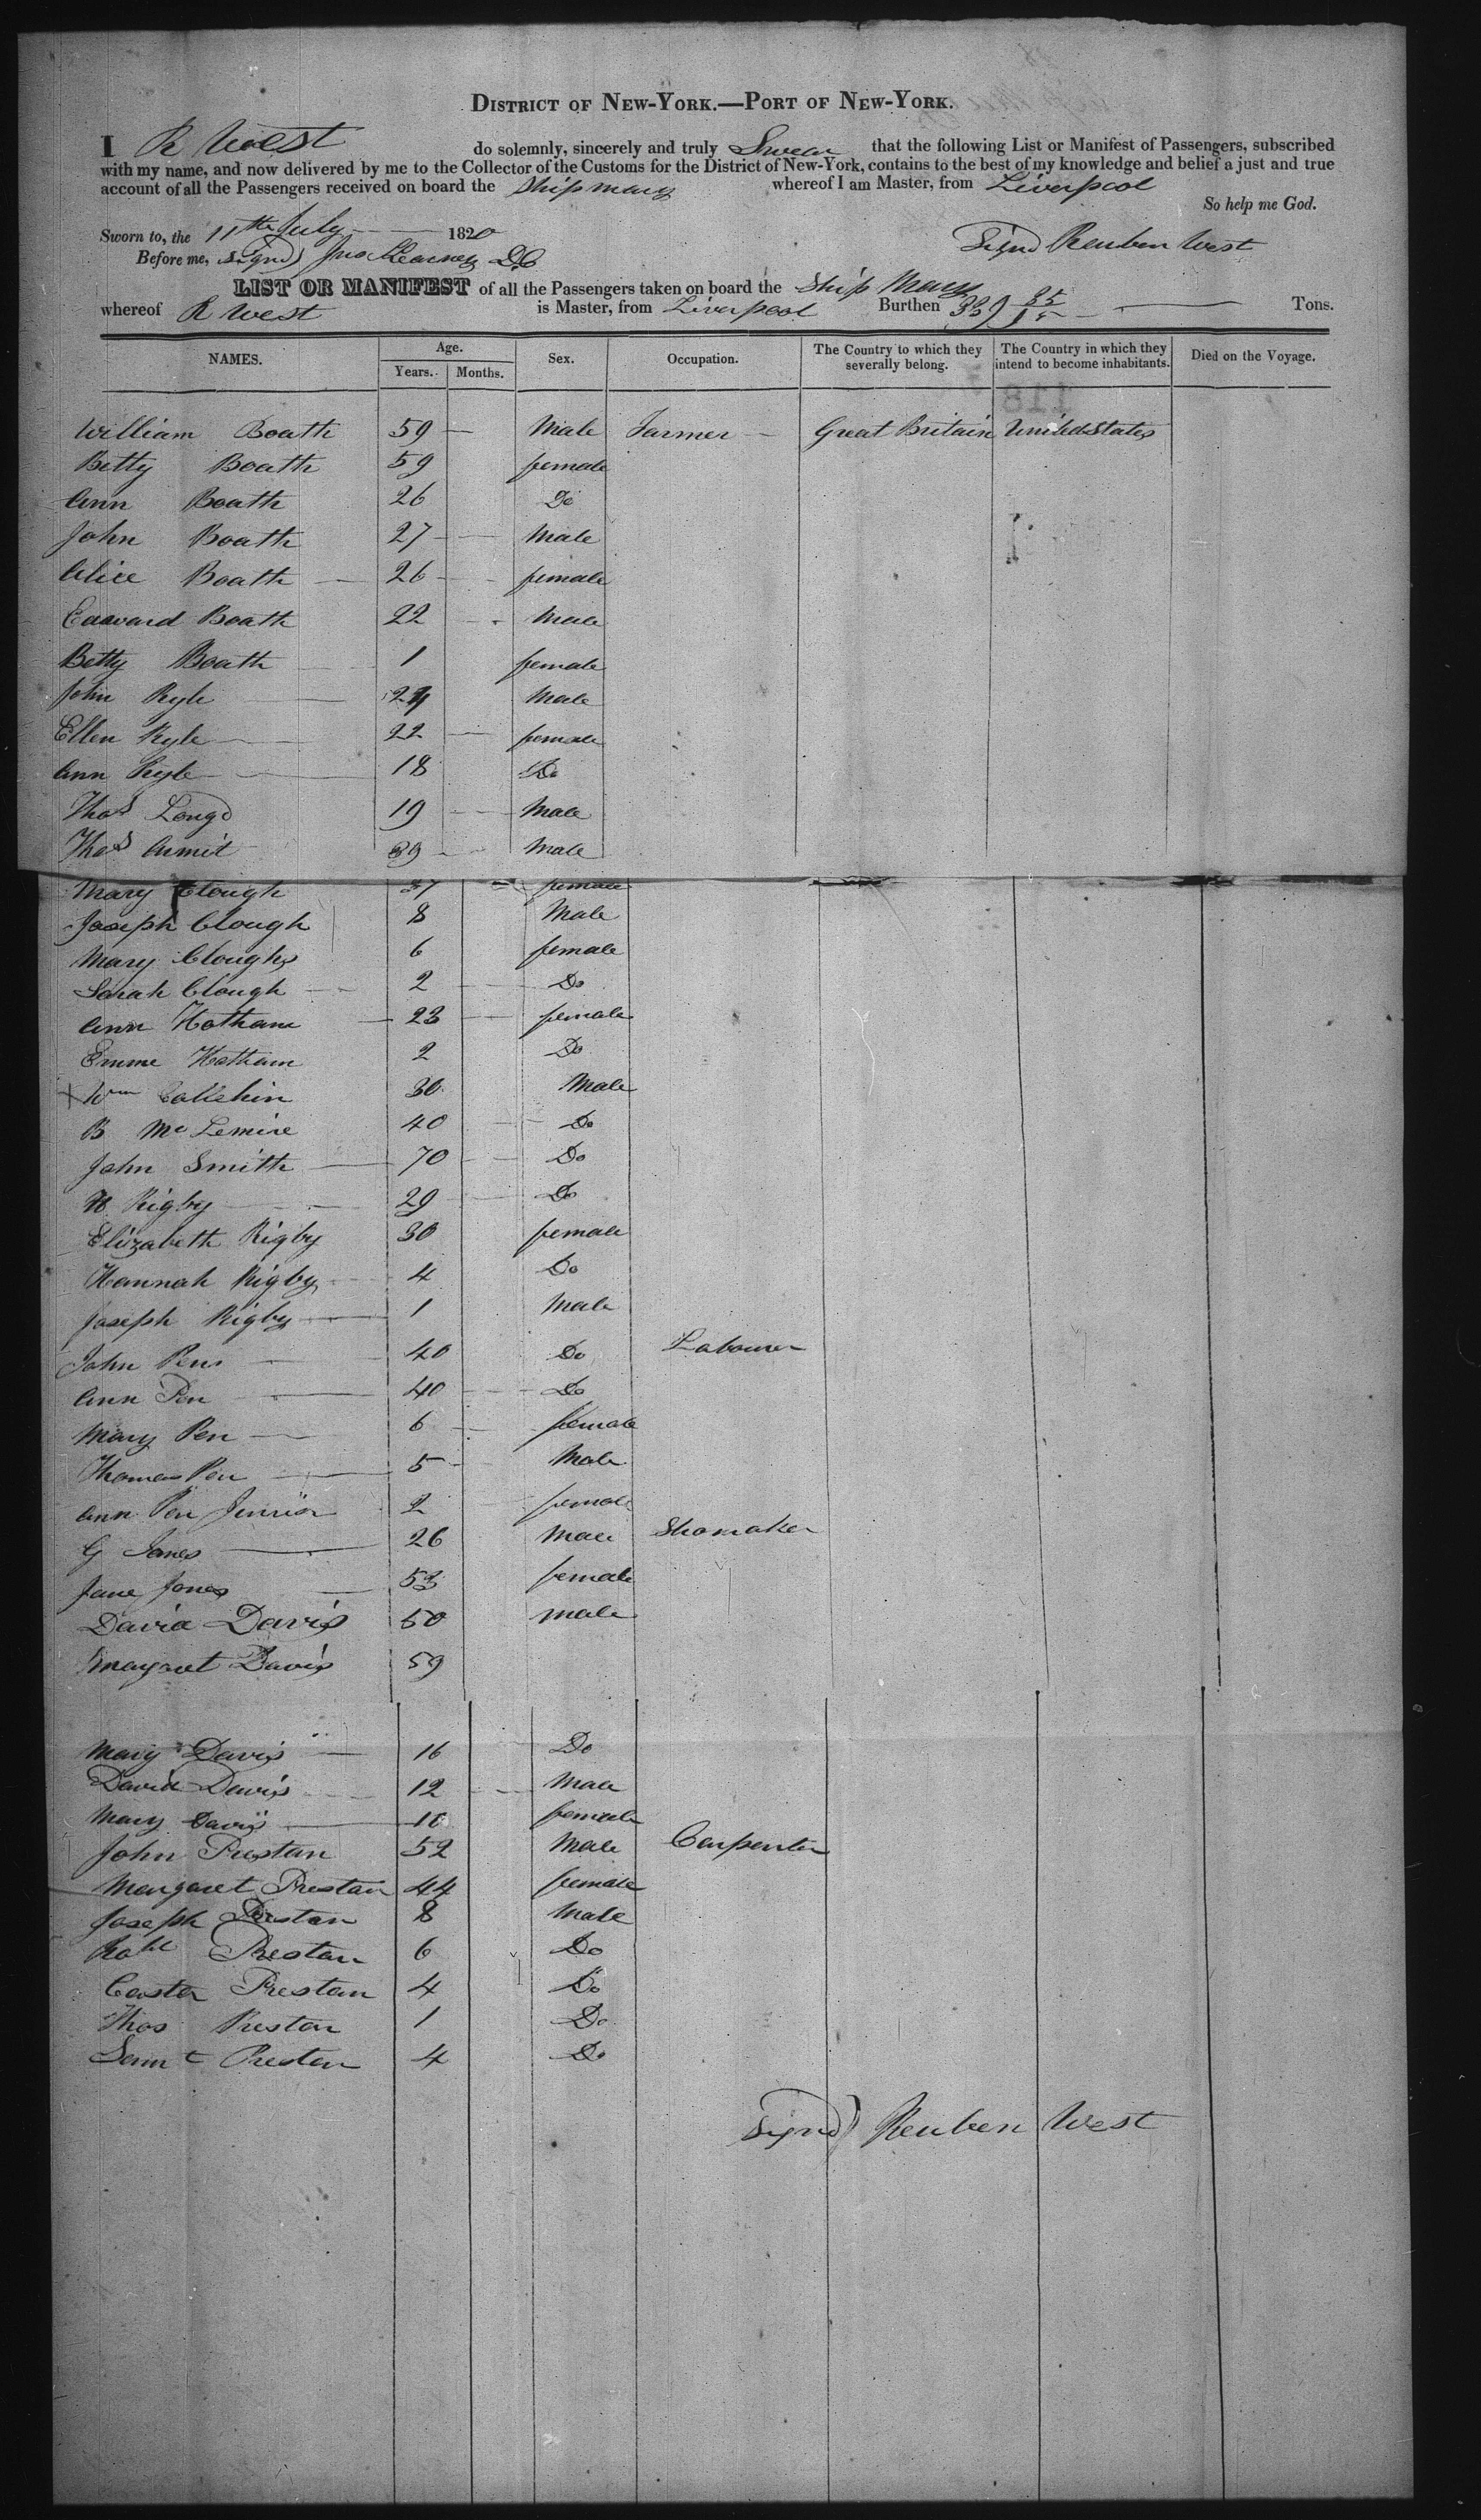 DISTRICT OF NEW-YORK.—PORT OF NEW-YORK.
I R West do solemnly, sincerely and truly Swear that the following List or Manifest of Passengers, subscribed
with my name, and now delivered by me to the Collector of the Customs for the District of New-York, contains to the best of my knowledge and belief a just and true
account of all the Passengers received on board the Ship mary whereof I am Master, from Liverpool
So help me God.
Sworn to, the 11th July 1820
Signd Reuben West
Before me, signd) Jno Kearney DC
LIST OR MANIFEST of all the Passengers taken on board the Ship Mary
whereof R West is Master, from Liverpool Burthen 339 Tons.
NAMES. Age. Years. Months. Sex. Occupation. The Country to which they severally belong. The Country in which they intend to become inhabitants. Died on the Voyage.
William Boath 59 Male Farmer Great Britain United States
Betty Boath 59 female
Ann Boath 26 Do
John Boath 27 Male
Alice Boath 26 female
Edward Boath 22 Male
Betty Boath 1 female
John Ryle Male
Ellen Ryle 22 female
Ann Ryle 18 Do
Thos Longd 19 Male
Thos 39 Male
Mary Clough 37 female
Joseph Clough 8 Male
Mary Clough 6 female
Sarah Clough 2 Do
Ann Hotham 23 female
Emme Hotham 2 Do
Wm 30 Male
B Mc 40 Do
John Smith 70 Do
Rigby 29 Do
Elizabeth Rigby 30 female
Hannah Rigby 4 Do
Joseph Rigby 1 Male
John Pen 40 Do Labourer
Ann Pen 40 Do
Mary Pen 6 female
Thomas Pen 5 Male
Ann Pen Junior 2 female
G Jones 26 Male Shomaker
Jane Jones 53 female
David Davis 50 male
Margaret Davis 59
Mary Davis 16 Do
David Davis 12 Male
Mary Davis female
John Prestan 52 Male Carpenter
Margaret Prestan 44 female
Joseph Prestan 8 Male
Robt Prestan 6 Do
Prestan 4 Do
Thos Prestan 1 Do
Saml Prestan 4 Do
Signd) Reuben West